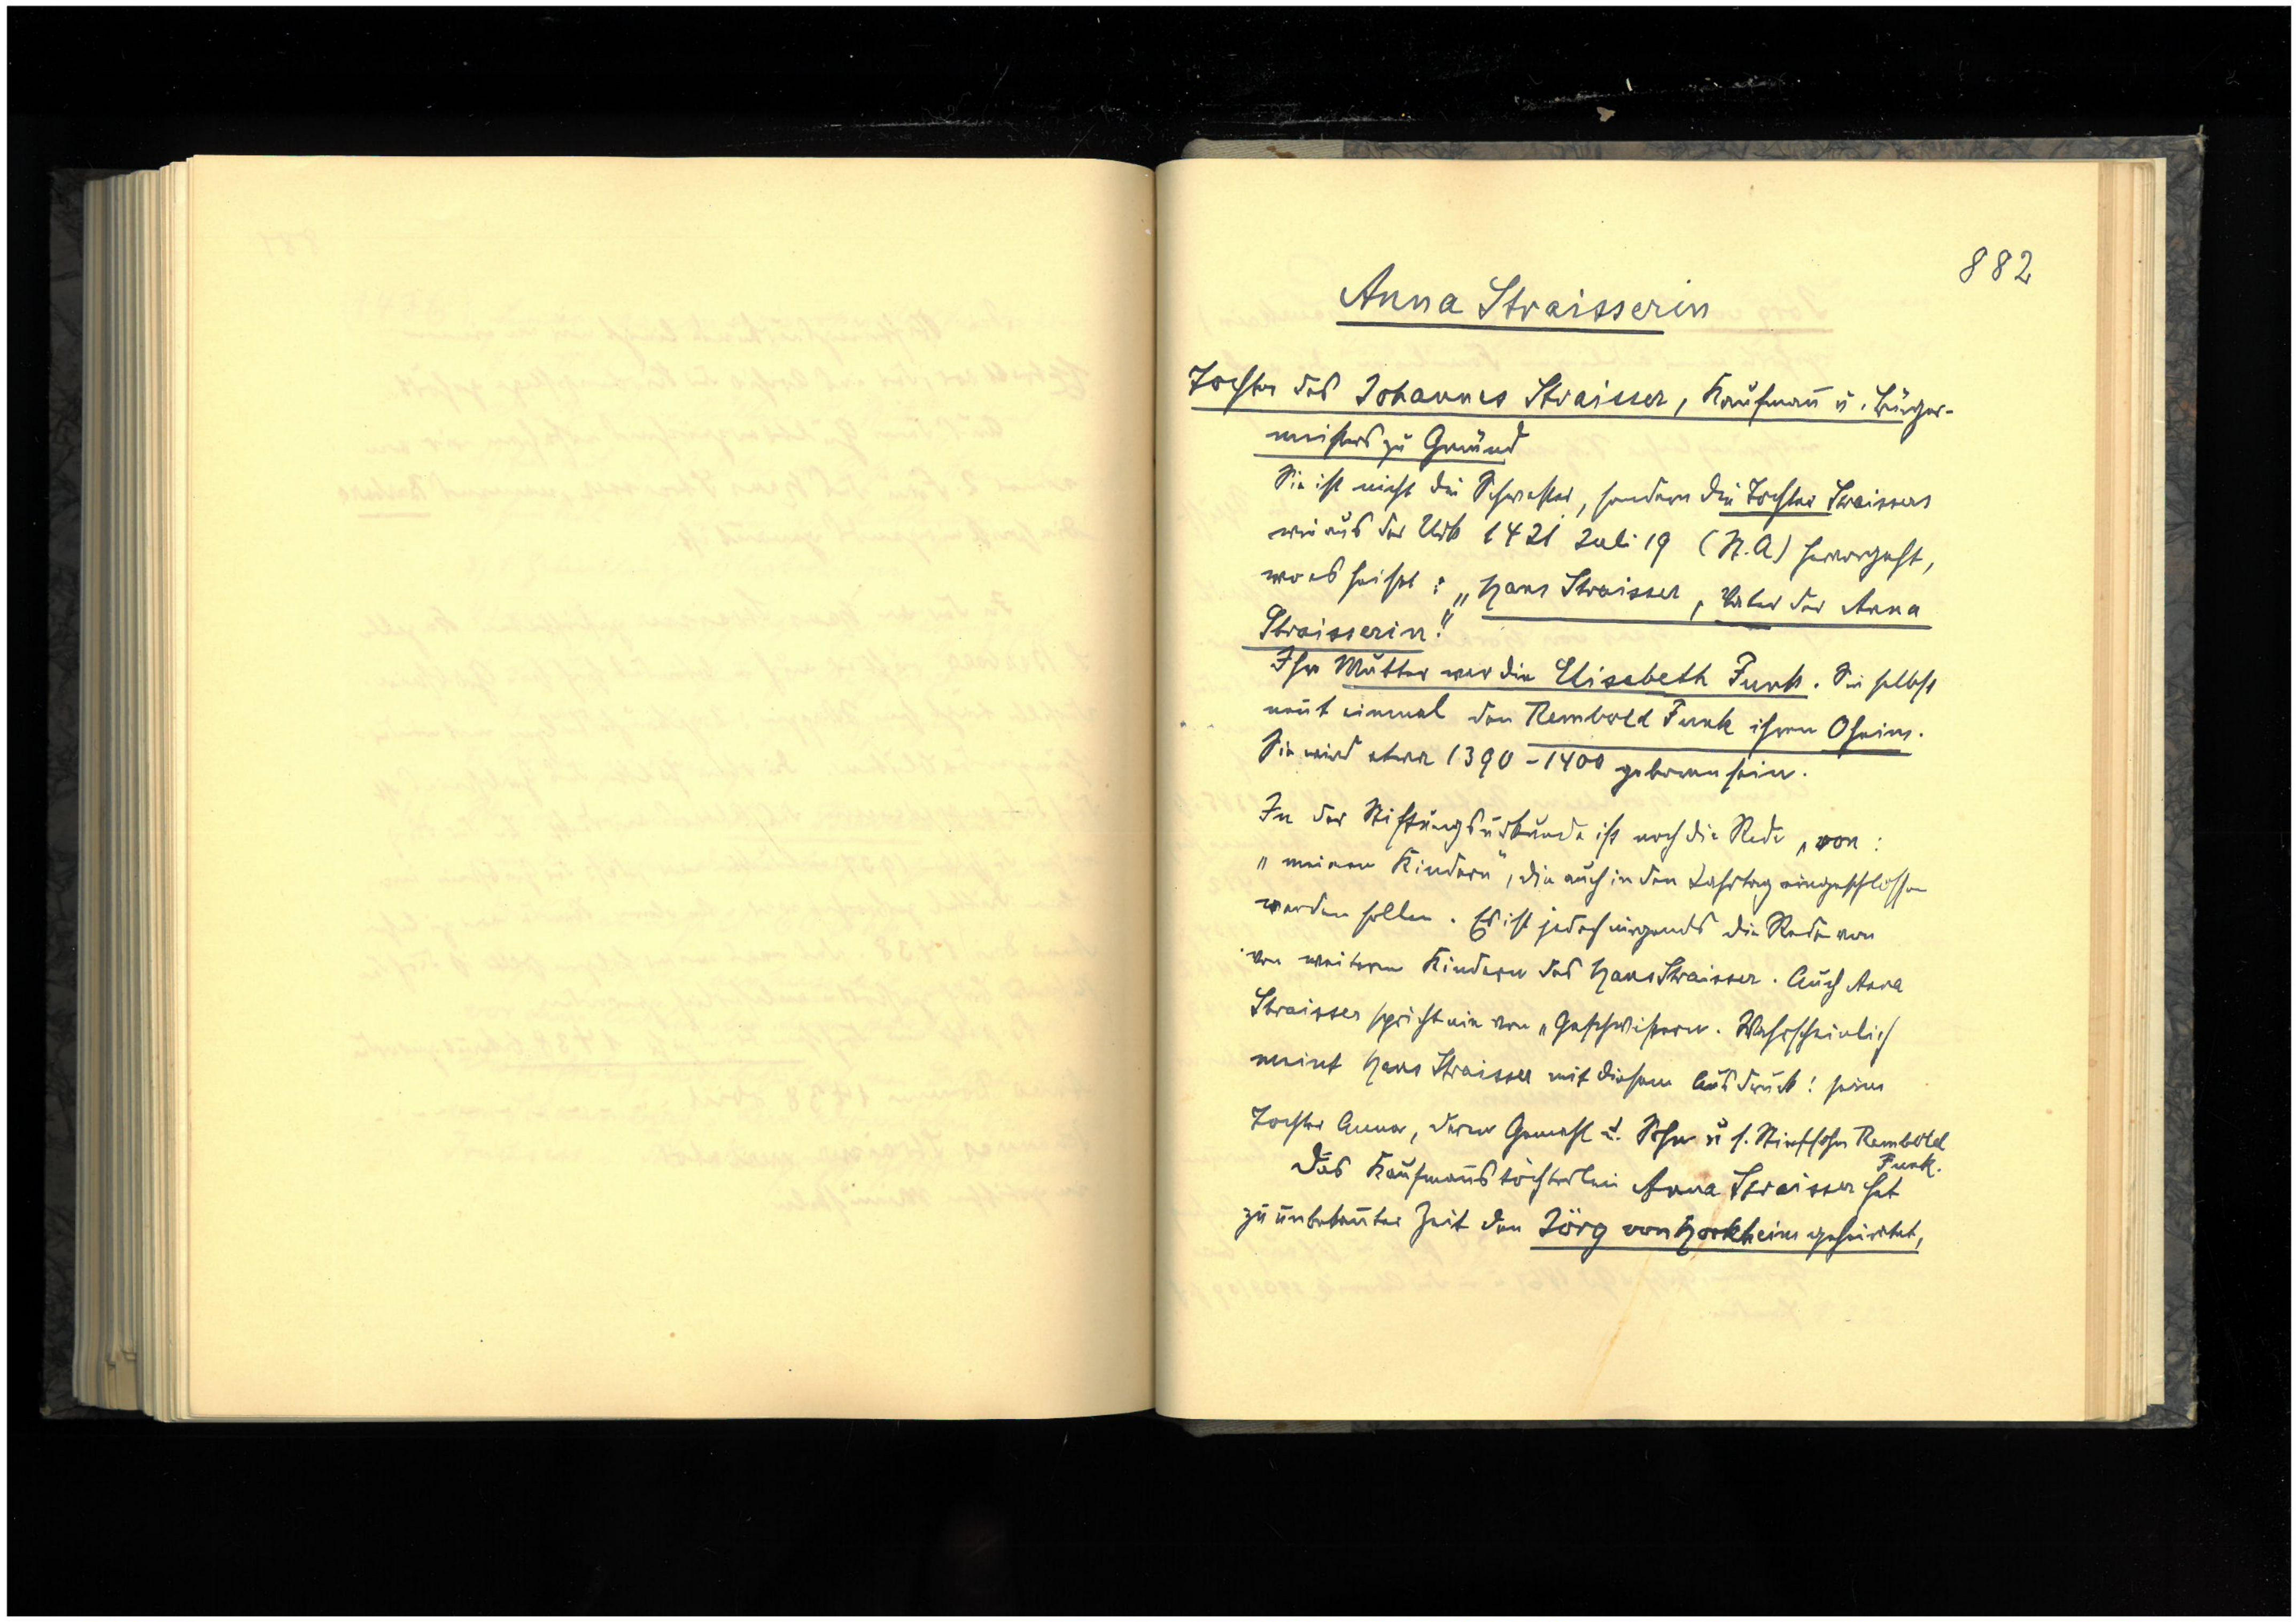 882
Anna Straisserin
Tochter des Johannes Straisser, Kaufmañ u. Bürger-
meisters zu Gmünd
Sie ist nicht die Schwester, sondern die Tochter Straissers
wie aus der Urk 1421 Juli 19 (N.A) hervorgeht,
wo es heißt: „Hans Straisser, Vater der Anna
Straisserin."
Ihre Mutter war die Elisabeth Funk. Sie selbst
neñt einmal den Rembold Funk ihren Oheim.
Sie wird etwa 1390-1400 geboren sein.
In der Stiftungsurkunde ist noch die Rede „von:
„meinen Kindern", die auch in den Jahrtag eingeschlossen
werden sollen. Es ist jedoch nirgends die Rede von
von weiteren Kindern des Hans Straisser. Auch Anna
Straisser spricht nie von „Geschwistern. Wahrscheinlich
meint Hans Straisser mit diesem Ausdruck: seine
Tochter Anna, deren Gemahl u. Sohn u s. Stiefsohn Rembold
Funk.
Das Kaufmañstöchterlein Anna Straisser hat
zu unbekañter Zeit den Jörg von Horkheim geheiratet,